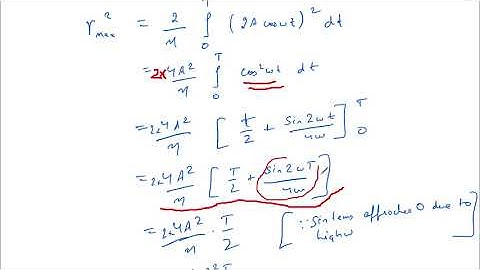 γ²max = 2/η ∫₀ᵀ (2A cosωt)² dt
= 2×4A²/η ∫₀ᵀ cos²ωt dt
= 2×4A²/η [ t/2 + Sin2ωt/4ω ]₀ᵀ
= 2×4A²/η [ T/2 + Sin2ωT/4ω ]
= 2×4A²/η · T/2 [ ∵ Sin term approaches 0 due to
high ω ]